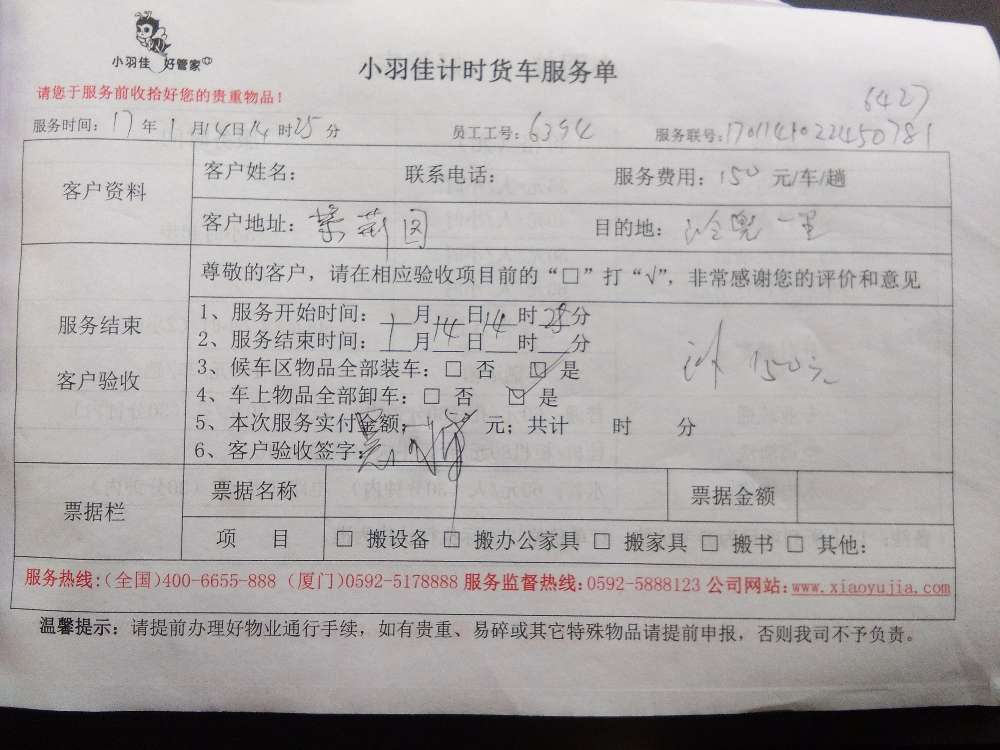 小羽佳 好管家
小羽佳计时货车服务单
请您于服务前收拾好您的贵重物品！
6427
服务时间：17年1月14日14时25分 员工工号：6394 服务联号：1701141022450781
客户资料
客户姓名： 联系电话： 服务费用：150元/车/趟
客户地址：紫荆园 目的地：兜一里
服务结束
客户验收
尊敬的客户，请在相应验收项目前的“□”打“√”，非常感谢您的评价和意见
1、服务开始时间：1月14日14时25分
2、服务结束时间：1月14日__时__分
3、候车区物品全部装车：□ 否 □ 是
4、车上物品全部卸车：□ 否 ☑ 是
5、本次服务实付金额： 元；共计 时 分
6、客户验收签字：
计150元
票据栏
票据名称 票据金额
项 目 □ 搬设备 □ 搬办公家具 □ 搬家具 □ 搬书 □ 其他：
服务热线：(全国)400-6655-888 (厦门)0592-5178888 服务监督热线：0592-5888123 公司网站：www.xiaoyujia.com
温馨提示：请提前办理好物业通行手续，如有贵重、易碎或其它特殊物品请提前申报，否则我司不予负责。